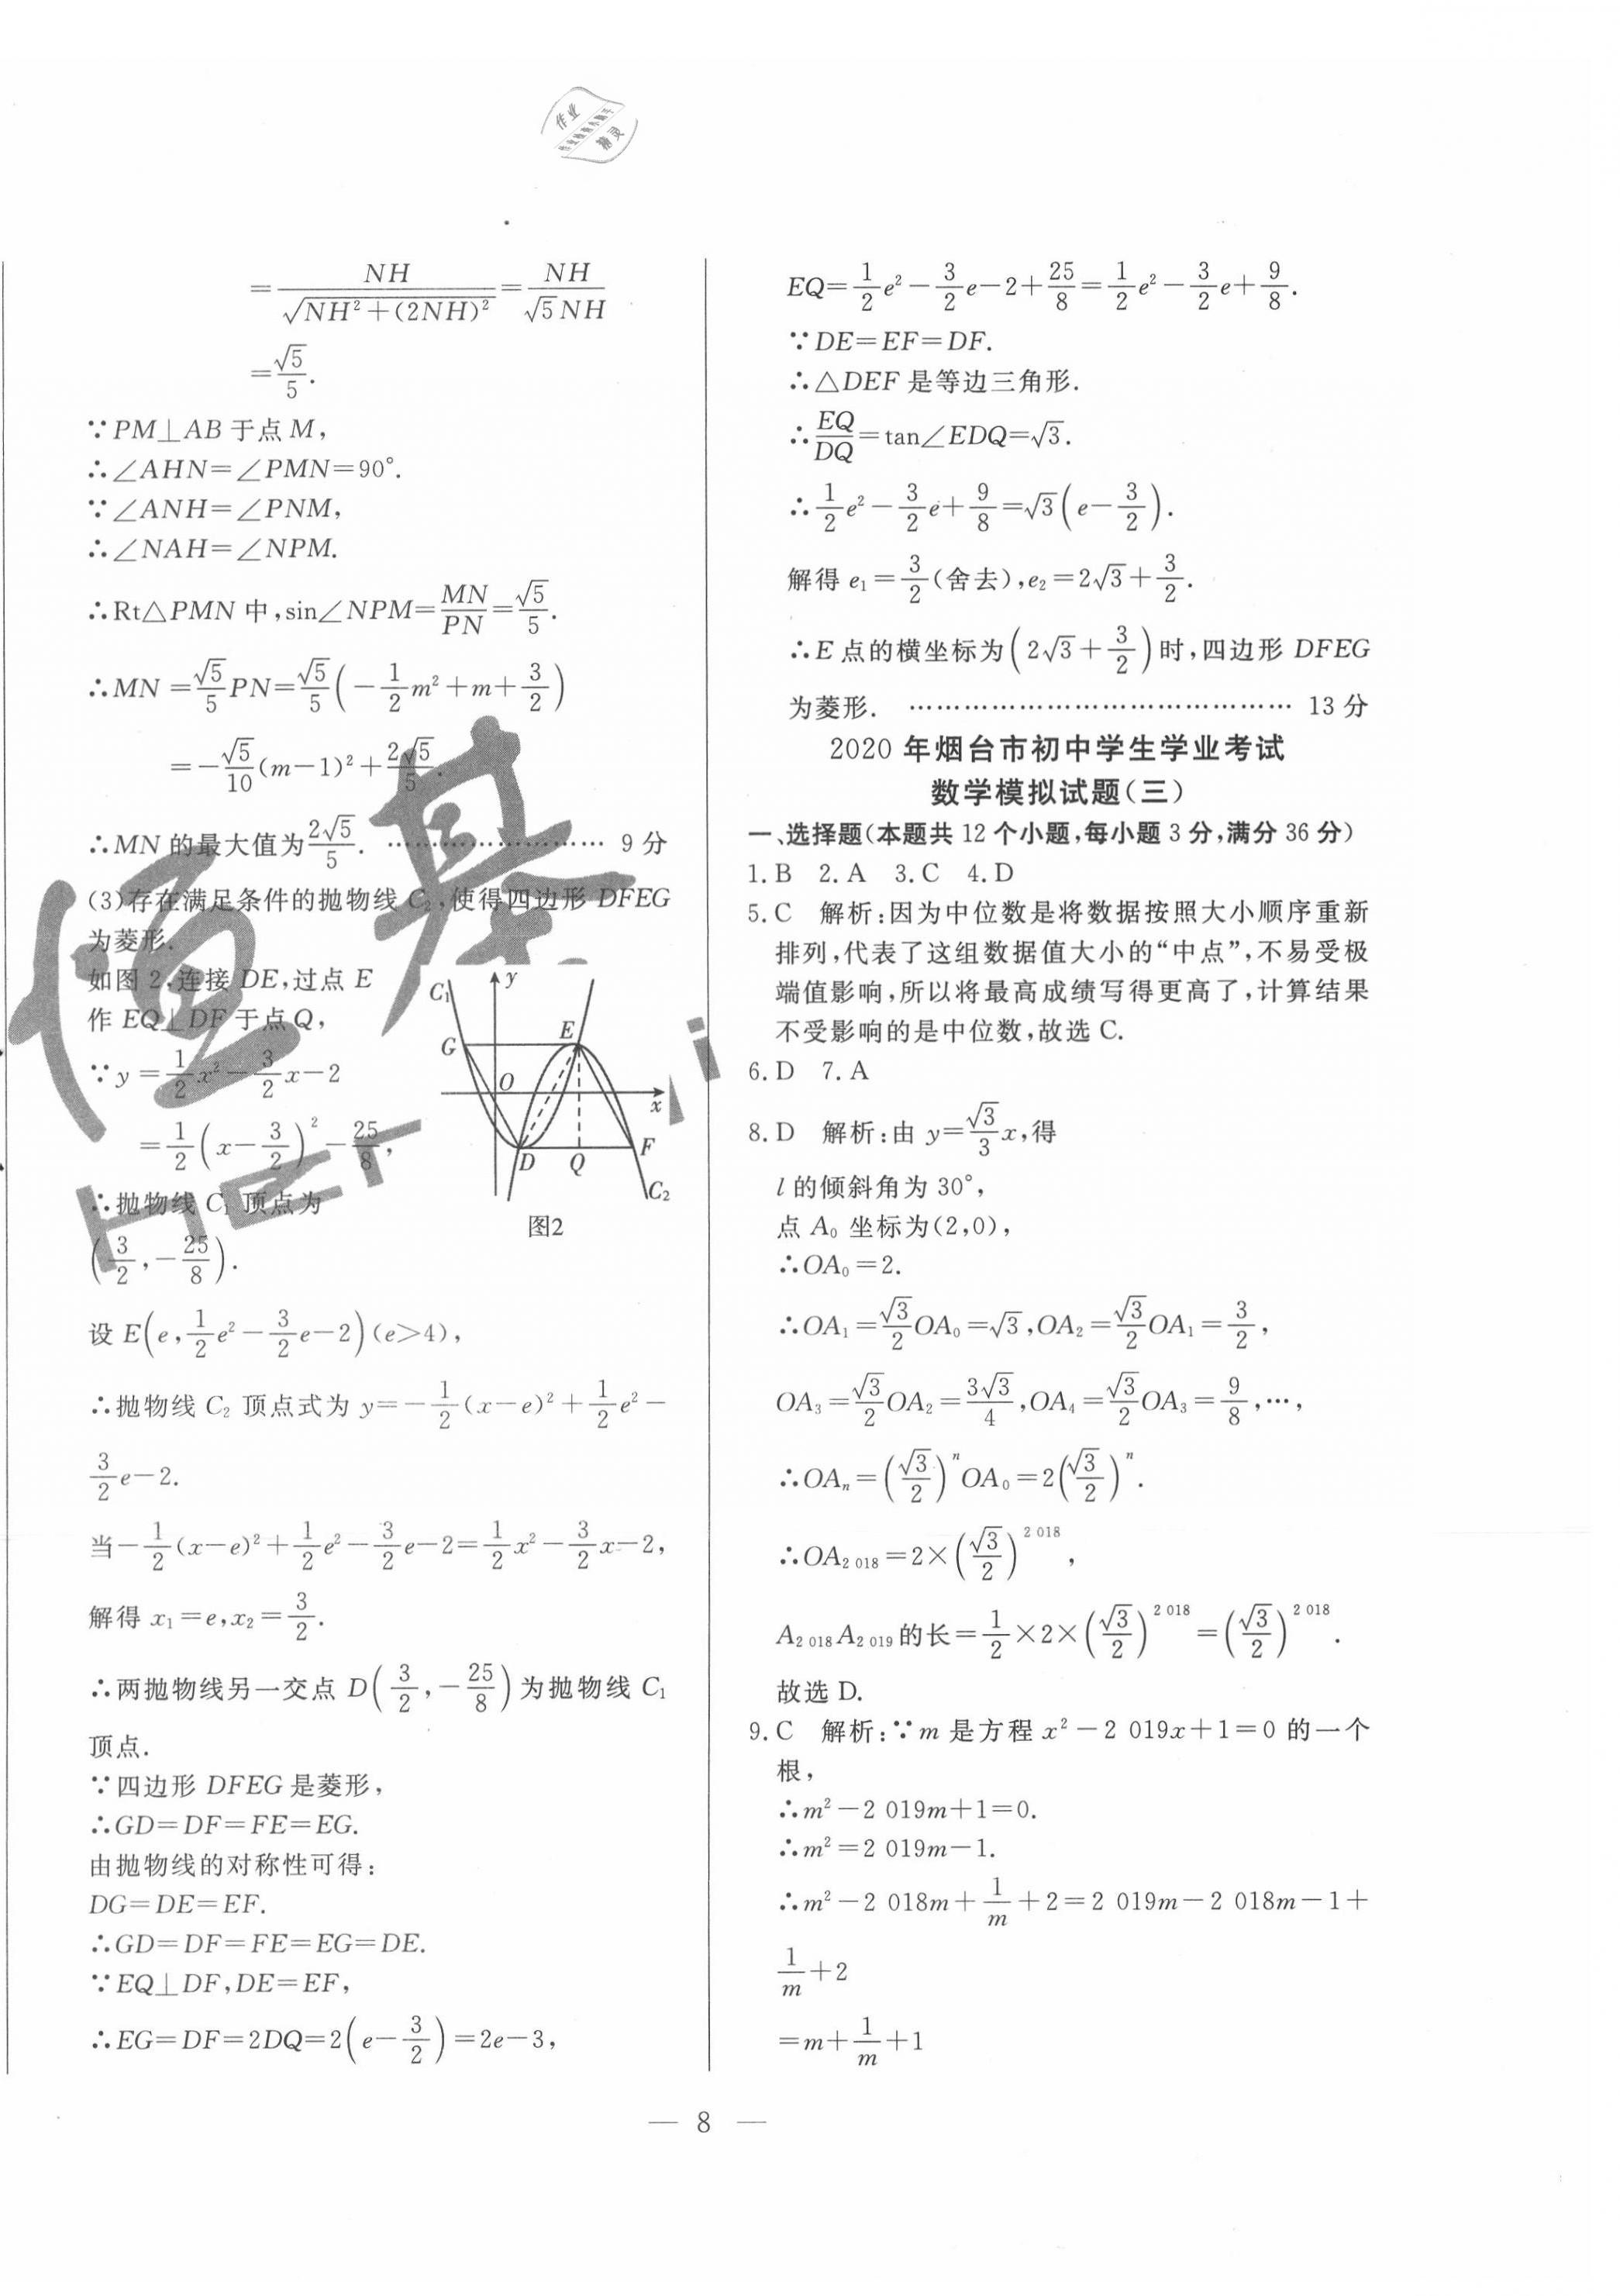 作业
精灵
=NH/√(NH²+(2NH)²)=NH/(√5NH)
=√5/5.
∵PM⊥AB 于点 M,
∴∠AHN=∠PMN=90°.
∵∠ANH=∠PNM,
∴∠NAH=∠NPM.
∴Rt△PMN 中,sin∠NPM=MN/PN=√5/5.
∴MN=(√5/5)PN=(√5/5)(-(1/2)m²+m+3/2)
=-(√5/10)(m-1)²+2√5/5.
∴MN 的最大值为2√5/5. ……………………… 9 分
(3)存在满足条件的抛物线 C₂,使得四边形 DFEG
为菱形.
如图 2,连接 DE,过点 E
作 EQ⊥DF 于点 Q,
∵y=(1/2)x²-(3/2)x-2
=(1/2)(x-3/2)²-25/8,
∴抛物线 C₁ 顶点为
(3/2,-25/8).
C₁
y
G
E
O
x
D
Q
F
C₂
图2
设 E(e,(1/2)e²-(3/2)e-2)(e>4),
∴抛物线 C₂ 顶点式为 y=-(1/2)(x-e)²+(1/2)e²-
(3/2)e-2.
当-(1/2)(x-e)²+(1/2)e²-(3/2)e-2=(1/2)x²-(3/2)x-2,
解得 x₁=e,x₂=3/2.
∴两抛物线另一交点 D(3/2,-25/8)为抛物线 C₁
顶点.
∵四边形 DFEG 是菱形,
∴GD=DF=FE=EG.
由抛物线的对称性可得:
DG=DE=EF.
∴GD=DF=FE=EG=DE.
∵EQ⊥DF,DE=EF,
∴EG=DF=2DQ=2(e-3/2)=2e-3,
EQ=(1/2)e²-(3/2)e-2+25/8=(1/2)e²-(3/2)e+9/8.
∵DE=EF=DF.
∴△DEF 是等边三角形.
∴EQ/DQ=tan∠EDQ=√3.
∴(1/2)e²-(3/2)e+9/8=√3(e-3/2).
解得 e₁=3/2(舍去),e₂=2√3+3/2.
∴E 点的横坐标为(2√3+3/2)时,四边形 DFEG
为菱形. …………………………………… 13 分
2020 年烟台市初中学生学业考试
数学模拟试题(三)
一、选择题(本题共 12 个小题,每小题 3 分,满分 36 分)
1. B 2. A 3. C 4. D
5. C 解析:因为中位数是将数据按照大小顺序重新
排列,代表了这组数据值大小的“中点”,不易受极
端值影响,所以将最高成绩写得更高了,计算结果
不受影响的是中位数,故选 C.
6. D 7. A
8. D 解析:由 y=(√3/3)x,得
l 的倾斜角为 30°,
点 A₀ 坐标为(2,0),
∴OA₀=2.
∴OA₁=(√3/2)OA₀=√3,OA₂=(√3/2)OA₁=3/2,
OA₃=(√3/2)OA₂=3√3/4,OA₄=(√3/2)OA₃=9/8,…,
∴OAₙ=(√3/2)ⁿOA₀=2(√3/2)ⁿ.
∴OA₂ ₀₁₈=2×(√3/2)² ⁰¹⁸,
A₂ ₀₁₈A₂ ₀₁₉的长=1/2×2×(√3/2)² ⁰¹⁸=(√3/2)² ⁰¹⁸.
故选 D.
9. C 解析:∵m 是方程 x²-2 019x+1=0 的一个
根,
∴m²-2 019m+1=0.
∴m²=2 019m-1.
∴m²-2 018m+1/m+2=2 019m-2 018m-1+
1/m+2
=m+1/m+1
— 8 —
恒基